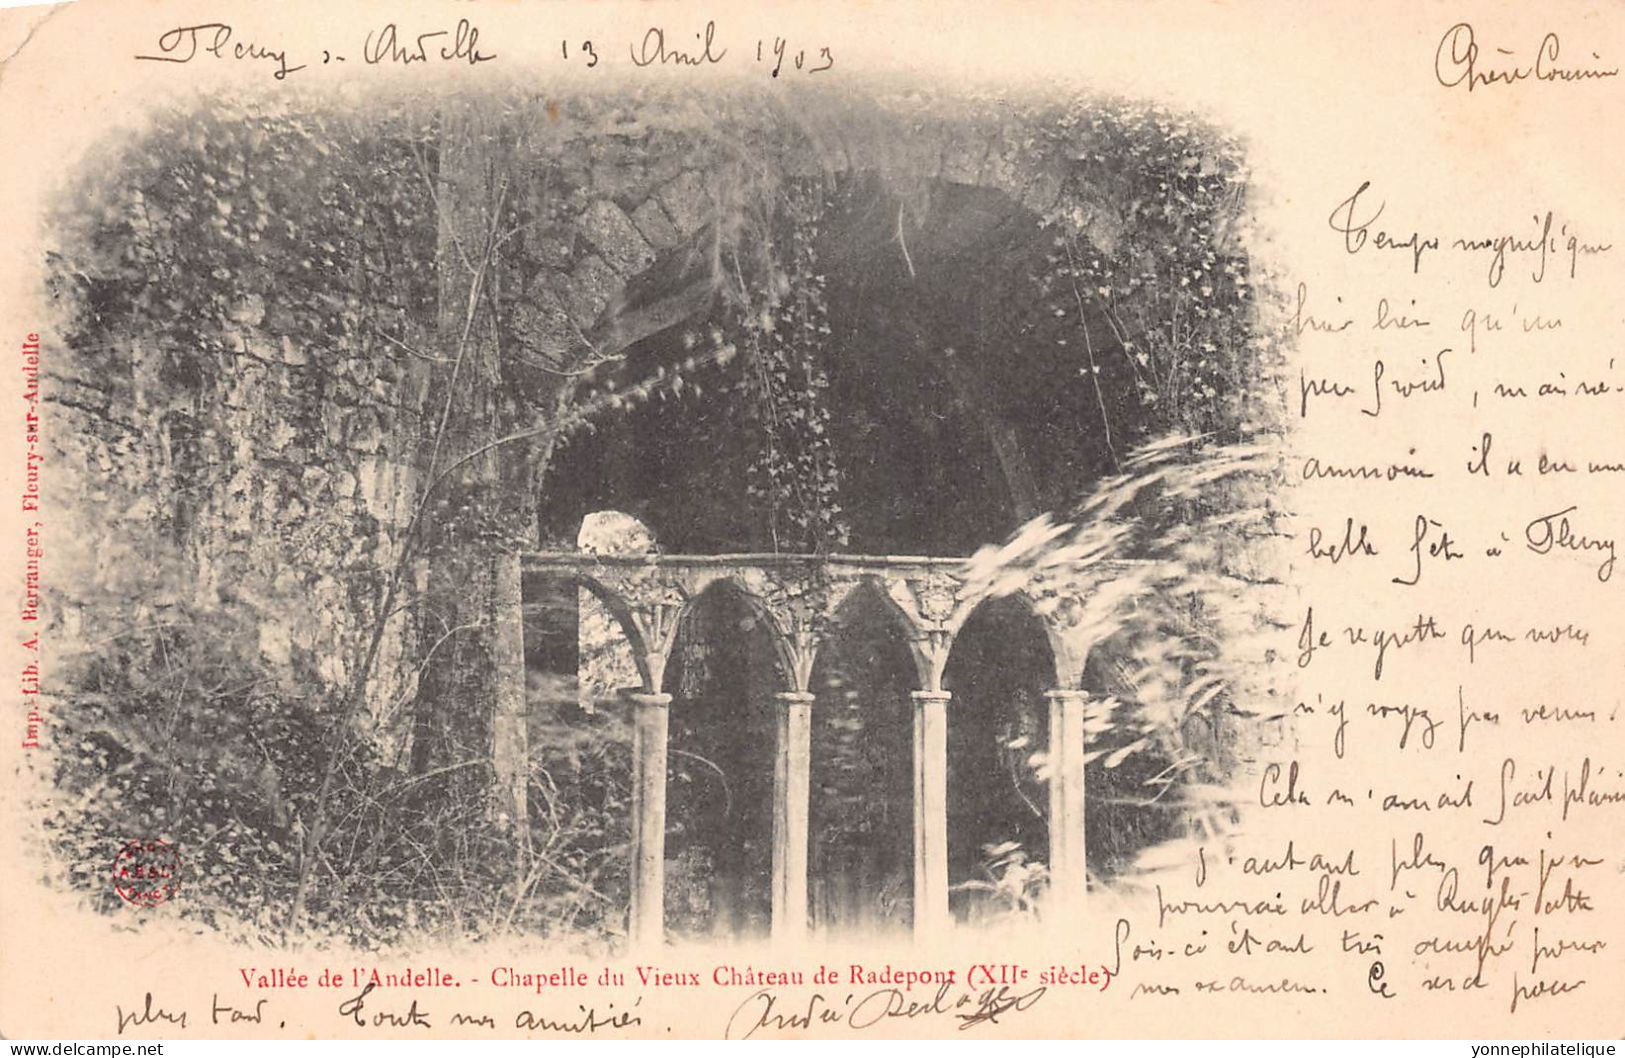 Fleury s- Andelle 13 Avril 1903
Chère Cousine
Temps magnifique
hier bien qu'un
peu froid, mais né-
anmoins il a eu une
belle fête à Fleury
Je regrette que vous
n'y soyez pas venus.
Cela m'aurait fait plaisir
d'autant plus que je ne
pourrai aller à Rugles cette
fois-ci étant très occupé pour
mes examens. Ce sera pour
plus tard. Toutes mes amitiés.
André
Imp.-Lib. A. Berranger, Fleury-sur-Andelle
Vallée de l'Andelle. - Chapelle du Vieux Château de Radepont (XIIe siècle)
yonnephilatelique.com